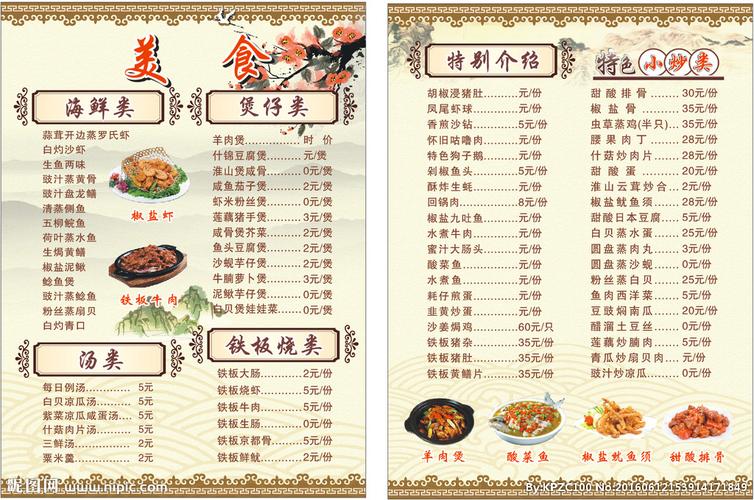 美食
海鲜类
蒜茸开边蒸罗氏虾
白灼沙虾
生鱼两味
豉汁蒸黄骨
豉汁盘龙鳝
清蒸侧鱼
五柳鲩鱼
荷叶蒸水鱼
生焗黄鳝
椒盐泥鳅
鲶鱼煲
豉汁蒸鲶鱼
粉丝蒸扇贝
白灼青口
椒盐虾
铁板牛肉
煲仔类
羊肉煲..............时 价
什锦豆腐煲........元/煲
淮山煲咸骨........0元/煲
咸鱼茄子煲........2元/煲
虾米粉丝煲........0元/煲
莲藕猪手煲........3元/煲
咸骨煲芥菜........2元/煲
鱼头豆腐煲........2元/煲
沙蚬芋仔煲........2元/煲
牛腩萝卜煲........3元/煲
泥鳅芋仔煲........0元/煲
白贝煲娃娃菜.....0元/煲
汤类
每日例汤............5元
白贝凉瓜汤........5元
紫菜凉瓜咸蛋汤....5元
什菇肉片汤........5元
三鲜汤...............2元
粟米羹...............2元
铁板烧类
铁板大肠............2元/份
铁板烧虾............2元/份
铁板牛肉............5元/份
铁板生肠............5元/份
铁板京都骨........5元/份
铁板鲜鱿............2元/份
特别介绍
胡椒浸猪肚........元/份
凤尾虾球............元/份
香煎沙钻............5元/份
怀旧咕噜肉........元/份
特色狗子鹅........元/份
剁椒鱼头............5元/份
酥炸生蚝............元/份
回锅肉...............8元/份
椒盐九吐鱼........元/份
水煮牛肉............元/份
蜜汁大肠头........元/份
酸菜鱼...............元/份
水煮鱼...............元/份
耗仔煎蛋............元/份
韭黄炒蛋............元/份
沙姜焗鸡............60元/只
铁板猪杂............35元/份
铁板猪肚............35元/份
铁板黄鳝片........35元/份
特色小炒类
甜 酸 排 骨........30元/份
椒 盐 骨............35元/份
虫草蒸鸡(半只)...35元/份
腰 果 肉 丁........28元/份
什菇炒肉片........28元/份
甜 酸 蛋............20元/份
淮山云茸炒合.....2元/份
椒盐鱿鱼须........28元/份
甜酸日本豆腐.....5元/份
白贝蒸水蛋........25元/份
圆盘蒸肉丸........3元/份
圆盘蒸沙蚬........0元/份
粉丝蒸白贝........25元/份
鱼肉西洋菜........5元/份
豆豉焖南瓜........20元/份
醋溜土豆丝........0元/份
莲藕炒腩肉........5元/份
青瓜炒扇贝肉.....元/份
豉汁炒凉瓜........元/份
羊肉煲
酸菜鱼
椒盐鱿鱼须
甜酸排骨
昵图网 www.nipic.com
By:KPZC100 No:20160612153914171849